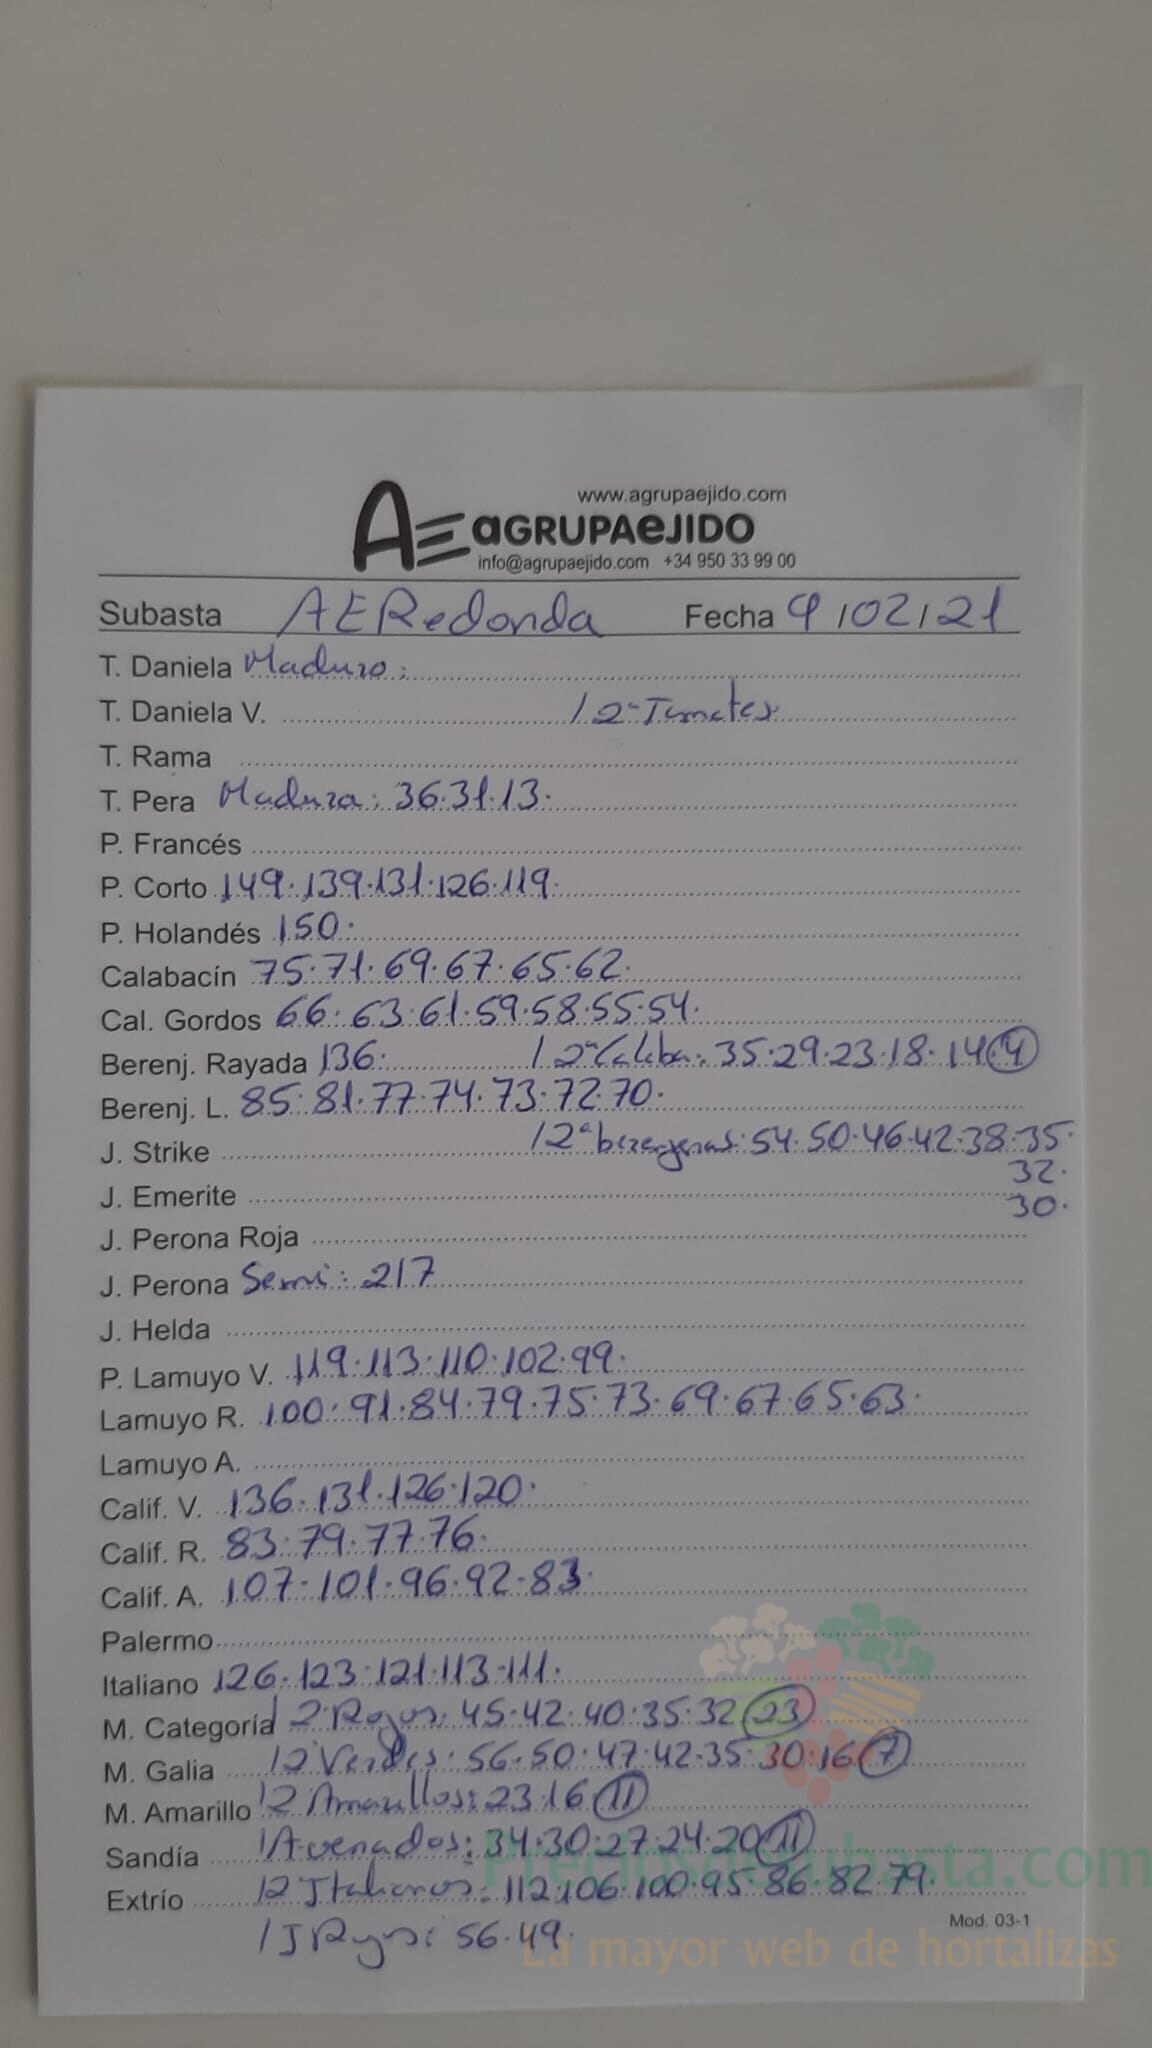 www.agrupaejido.com
AE aGRUPAeJIDO
info@agrupaejido.com +34 950 33 99 00
Subasta AERedonda Fecha 9/02/21
T. Daniela Maduro:
T. Daniela V. / 2ª Tomates
T. Rama
T. Pera Madura: 36·31·13·
P. Francés
P. Corto 149·139·131·126·119·
P. Holandés 150·
Calabacín 75·71·69·67·65·62·
Cal. Gordos 66·63·61·59·58·55·54·
Berenj. Rayada 136· / 2ª Calaba: 35·29·23·18·14·4
Berenj. L. 85·81·77·74·73·72·70·
J. Strike / 2ª berenjenas: 54·50·46·42·38·35·
32·
J. Emerite
30·
J. Perona Roja
J. Perona Semi: 217
J. Helda
P. Lamuyo V. 119·113·110·102·99·
Lamuyo R. 100·91·84·79·75·73·69·67·65·63·
Lamuyo A.
Calif. V. 136·131·126·120·
Calif. R. 83·79·77·76·
Calif. A. 107·101·96·92·83·
Palermo
Italiano 126·123·121·113·111·
M. Categoría / 2 Rojos: 45·42·40·35·32·23
M. Galia / 2 Verdes: 56·50·47·42·35·30·16·7
M. Amarillo / 2 Amarillos: 23·16·11
Sandía / Avenados: 34·30·27·24·20·11
Extrío / 2 Italianos: 112·106·100·95·86·82·79·
Mod. 03-1
/ I Rojos: 56·49·
PreciosdeSubasta.com
La mayor web de hortalizas